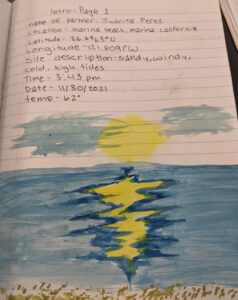 Intro-Page 1
name of partner: Juanita Perez
Location - marina beach, marina california
Latitude - 36.6963°N
Longitude - 121.8091°W
Site description - sandy, windy,
cold, high tides
Time - 3:43 pm
Date - 11/30/2021
temp - 62°